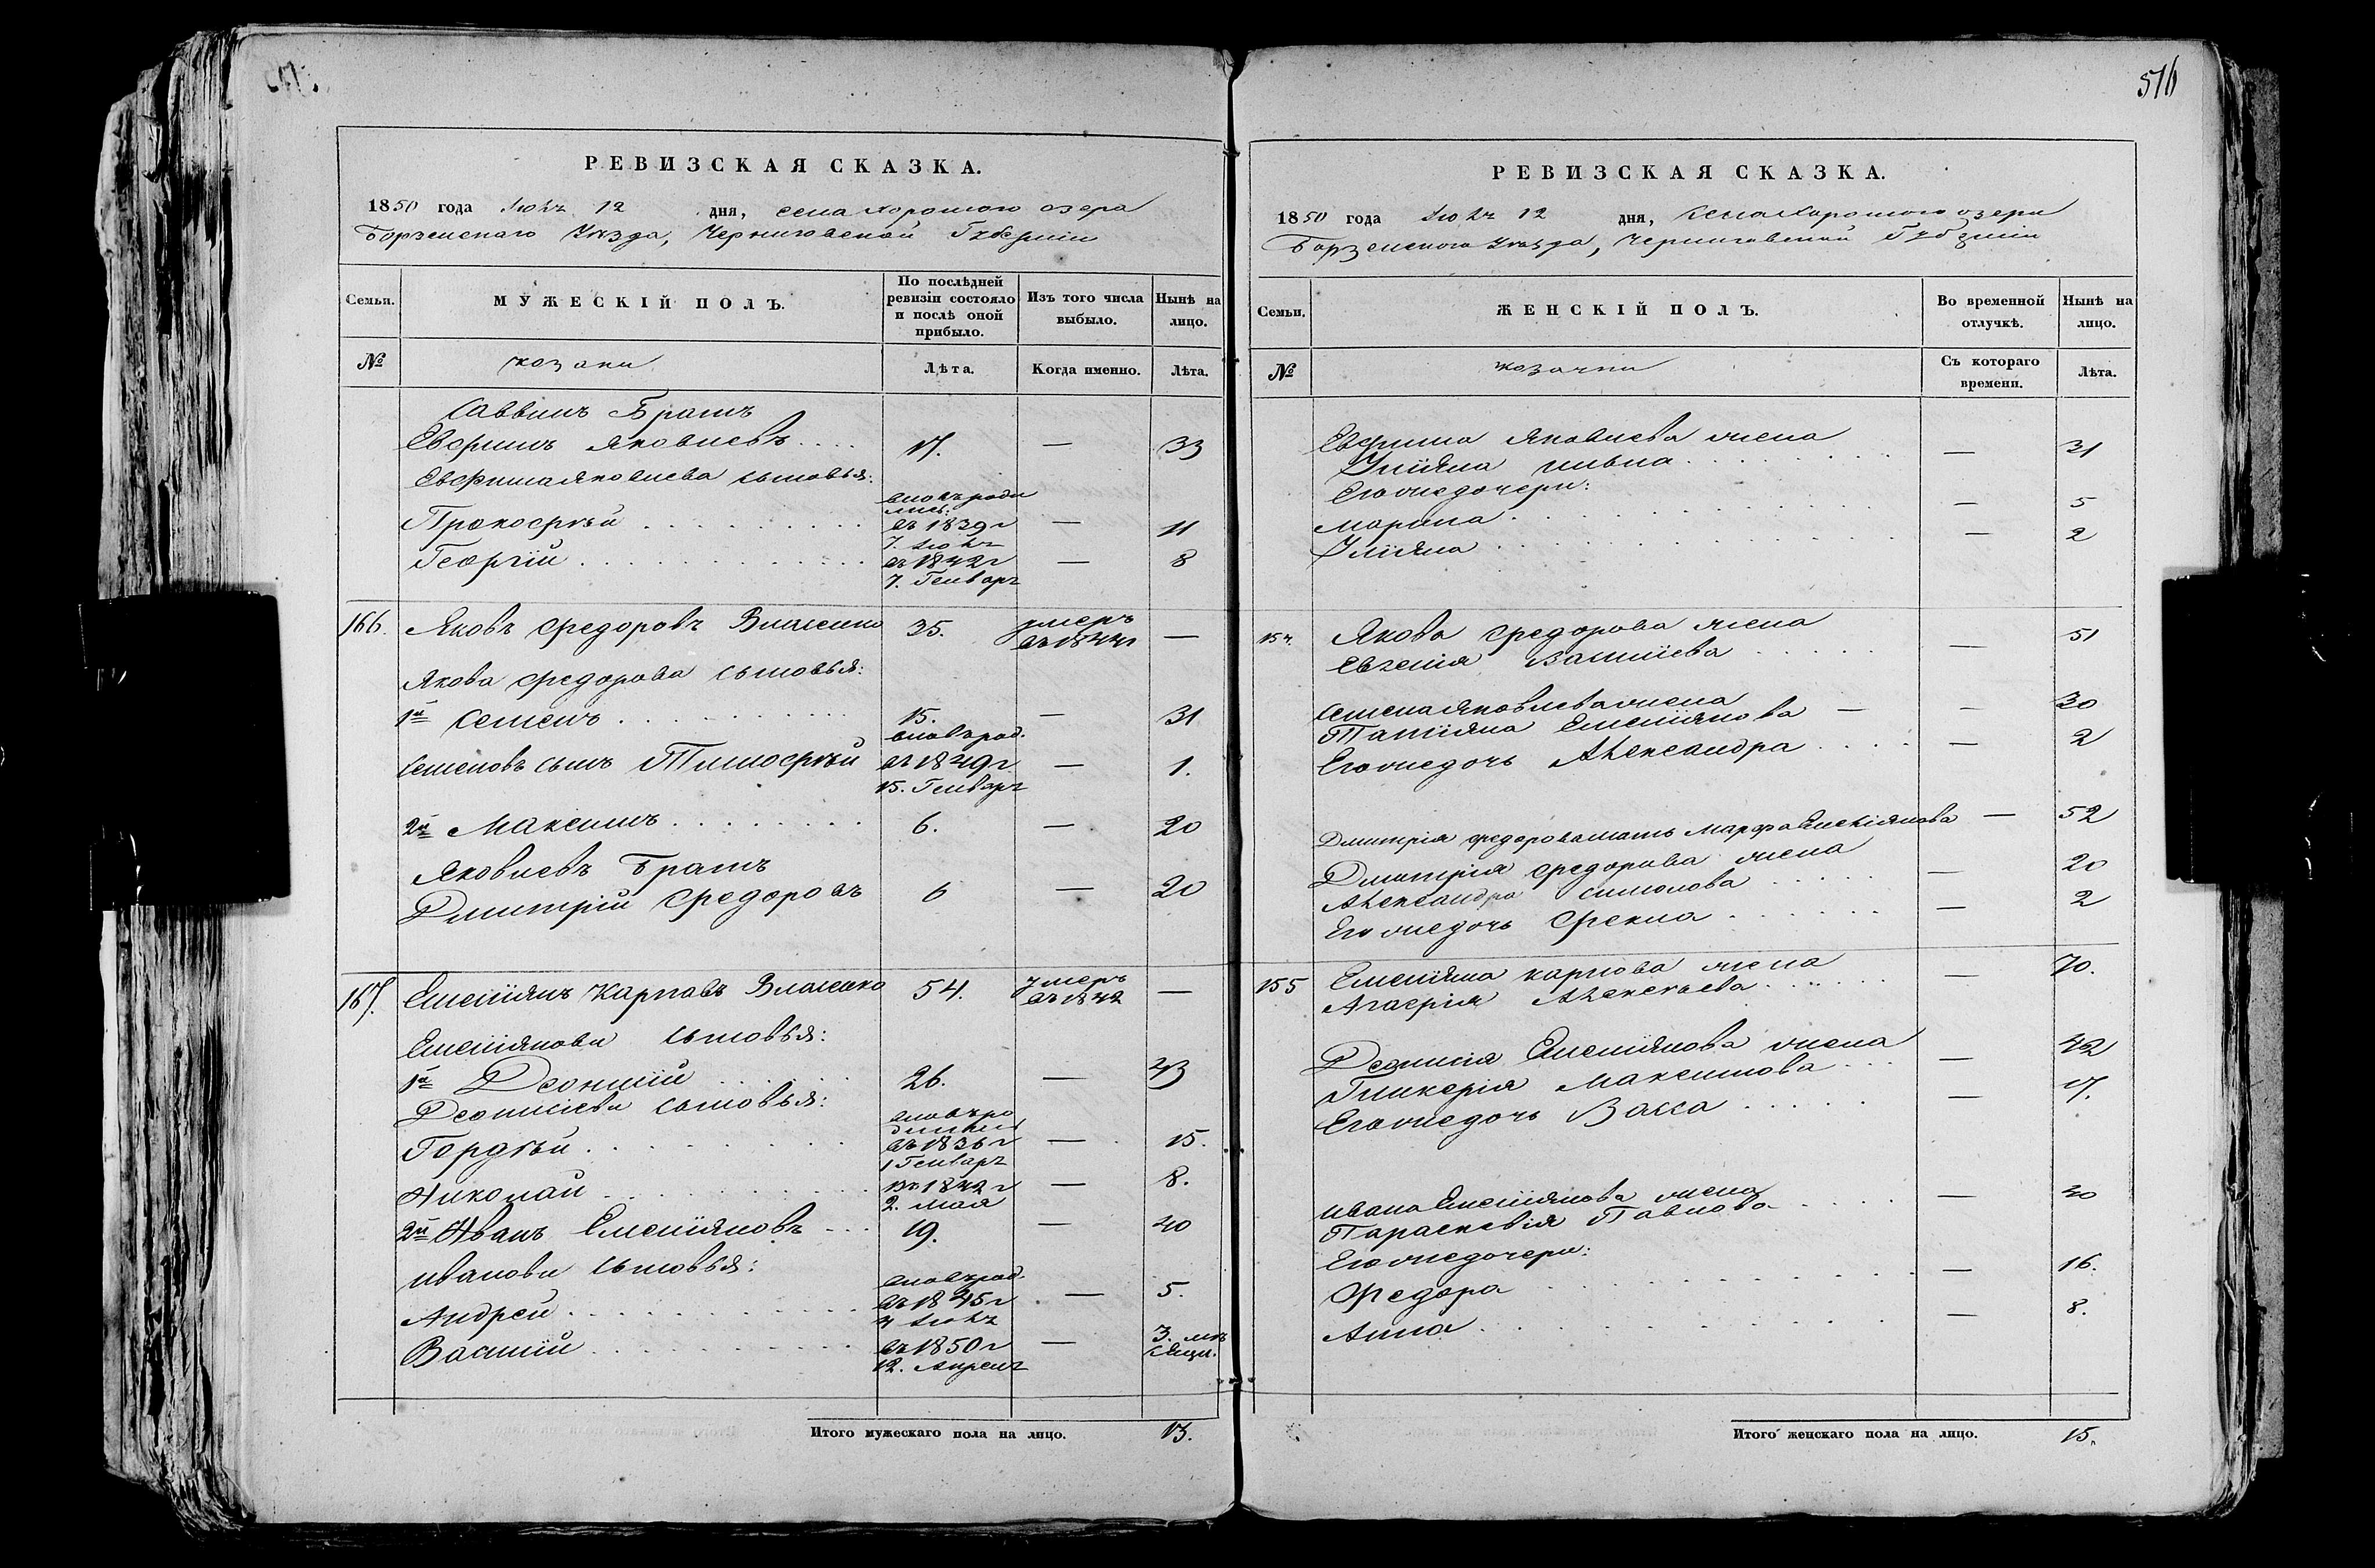 516
РЕВИЗСКАЯ СКАЗКА.
1850 года Іюля 12 дня, села Хорошого озера
Борзенскаго Уѣзда, Черниговской Губерніи
Семьи.
МУЖЕСКІЙ ПОЛЪ.
По послѣдней ревизіи состояло и послѣ оной прибыло.
Изъ того числа выбыло.
Нынѣ на лицо.
№
козаки
Лѣта.
Когда именно.
Лѣта.
Саввинъ Братъ
Ефримъ Яковлевъ 17. — 33
Ефрима Яковлева сыновья:
вновь роди
лись:
Прокофѣй въ 1839 г — 11
7. Іюля
Георгій въ 1842 г — 8
7. Генваря
166. Яковъ Федоровъ Власенко 35. умеръ въ 1844 г —
Якова Федорова сыновья:
1й Семенъ 15. — 31
вновь род.
Семеновъ сынъ Тимофѣй въ 1849 г — 1.
15. Генваря
2й Максимъ 6. — 20
Яковлевъ Братъ
Дмитрій Федоровъ 6 — 20
167. Емеліянъ Карповъ Власенко 54. умеръ въ 1842 —
Емеліянови сыновья:
1й Деонисій 26. — 43
Деонисіеви сыновья:
вновь ро
дились
Гордѣй въ 1836 г — 15.
1 Генваря
Николай въ 1842 г — 8.
2. мая
2й Иванъ Емеліяновъ 19. — 40
Иванови сыновья:
вновь род.
Андрей въ 1845 г — 5.
4 Іюля
Василій въ 1850 г — 3. мѣ
сяца.
12. Апреля
Итого мужескаго пола на лицо. 13.
РЕВИЗСКАЯ СКАЗКА.
1850 года Іюля 12 дня, Села Хорошого озера
Борзенского Уѣзда, Черниговской Губерніи
Семьи.
ЖЕНСКІЙ ПОЛЪ.
Во временной отлучкѣ.
Нынѣ на лицо.
№
козачки
Съ котораго времени.
Лѣта.
Ефрима Яковлева жена
Уліяна Ильина — 31
Его же дочери:
Марина — 5
Уліяна — 2
154. Якова Федорова жена
Евгенія Василіева — 51
Семена Яковлева жена
Татіяна Емеліянова — — 30
Его же дочь Александра — 2
Дмитрія Федорова мать Марфа Емеліянова — 52
Дмитрія Федорова жена
Александра Симонова — 20
Его же дочь Фекла — 2
155 Емеліяна Карпова жена
Агафія Алексѣева — 70.
Деонисія Емеліянова жена
Гликерія Максимова — 42
Его же дочь Васса — 17.
Ивана Емеліянова жена
Параскевія Павлова — 40
Его же дочери:
Федора — 16.
Анна — 8.
Итого женскаго пола на лицо. 15.